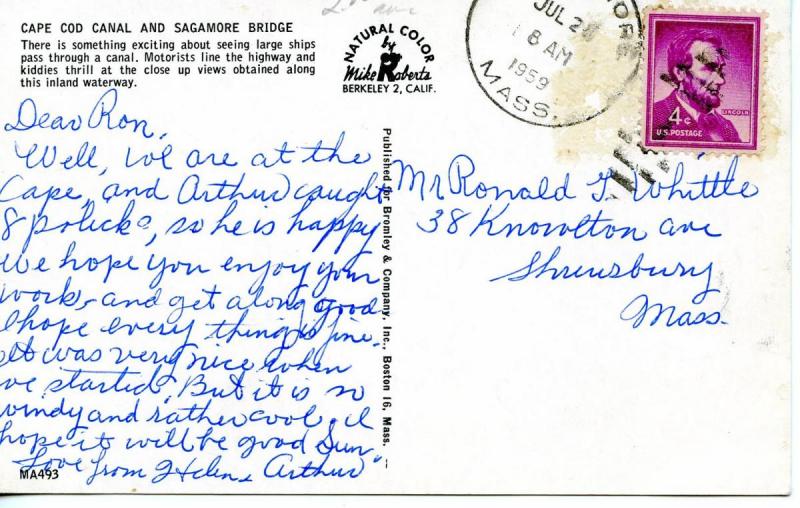 CAPE COD CANAL AND SAGAMORE BRIDGE
There is something exciting about seeing large ships
pass through a canal. Motorists line the highway and
kiddies thrill at the close up views obtained along
this inland waterway.
NATURAL COLOR
by
Mike Roberts
BERKELEY 2, CALIF.
MORE
JUL 2
8 AM
1959
MASS.
LINCOLN
4¢
U.S. POSTAGE
Dear Ron,
Well, we are at the
Cape, and Arthur caught
8 policks, so he is happy
We hope you enjoy your
work, and get along good
I hope every thing is fine.
It was very nice when
we started, But it is so
windy and rather cool. I
hope it will be good Sun.
Love from Helen & Arthur
MA493
Published for Bromley & Company, Inc., Boston 16, Mass.
Mr Ronald T. Whittle
38 Knowlton ave
Shrewsbury
Mass.